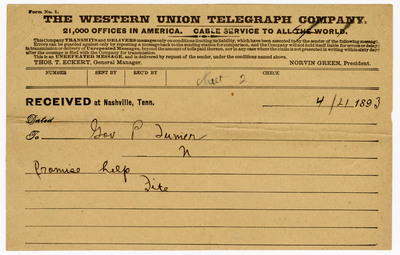 Form No. 1.
THE WESTERN UNION TELEGRAPH COMPANY.
21,000 OFFICES IN AMERICA. CABLE SERVICE TO ALL THE WORLD.
This Company TRANSMITS and DELIVERS messages only on conditions limiting its liability, which have been assented to by the sender of the following message.
Errors can be guarded against only by repeating a message back to the sending station for comparison, and the Company will not hold itself liable for errors or delays
in transmission or delivery of Unrepeated Messages, beyond the amount of tolls paid thereon, nor in any case where the claim is not presented in writing within sixty days
after the message is filed with the Company for transmission.
This is an UNREPEATED MESSAGE, and is delivered by request of the sender, under the conditions named above.
THOS. T. ECKERT, General Manager. NORVIN GREEN, President.
NUMBER SENT BY REC'D BY CHECK
2
RECEIVED at Nashville, Tenn. 4/21 1893
Dated
To Gov P Turner
N
Promise help